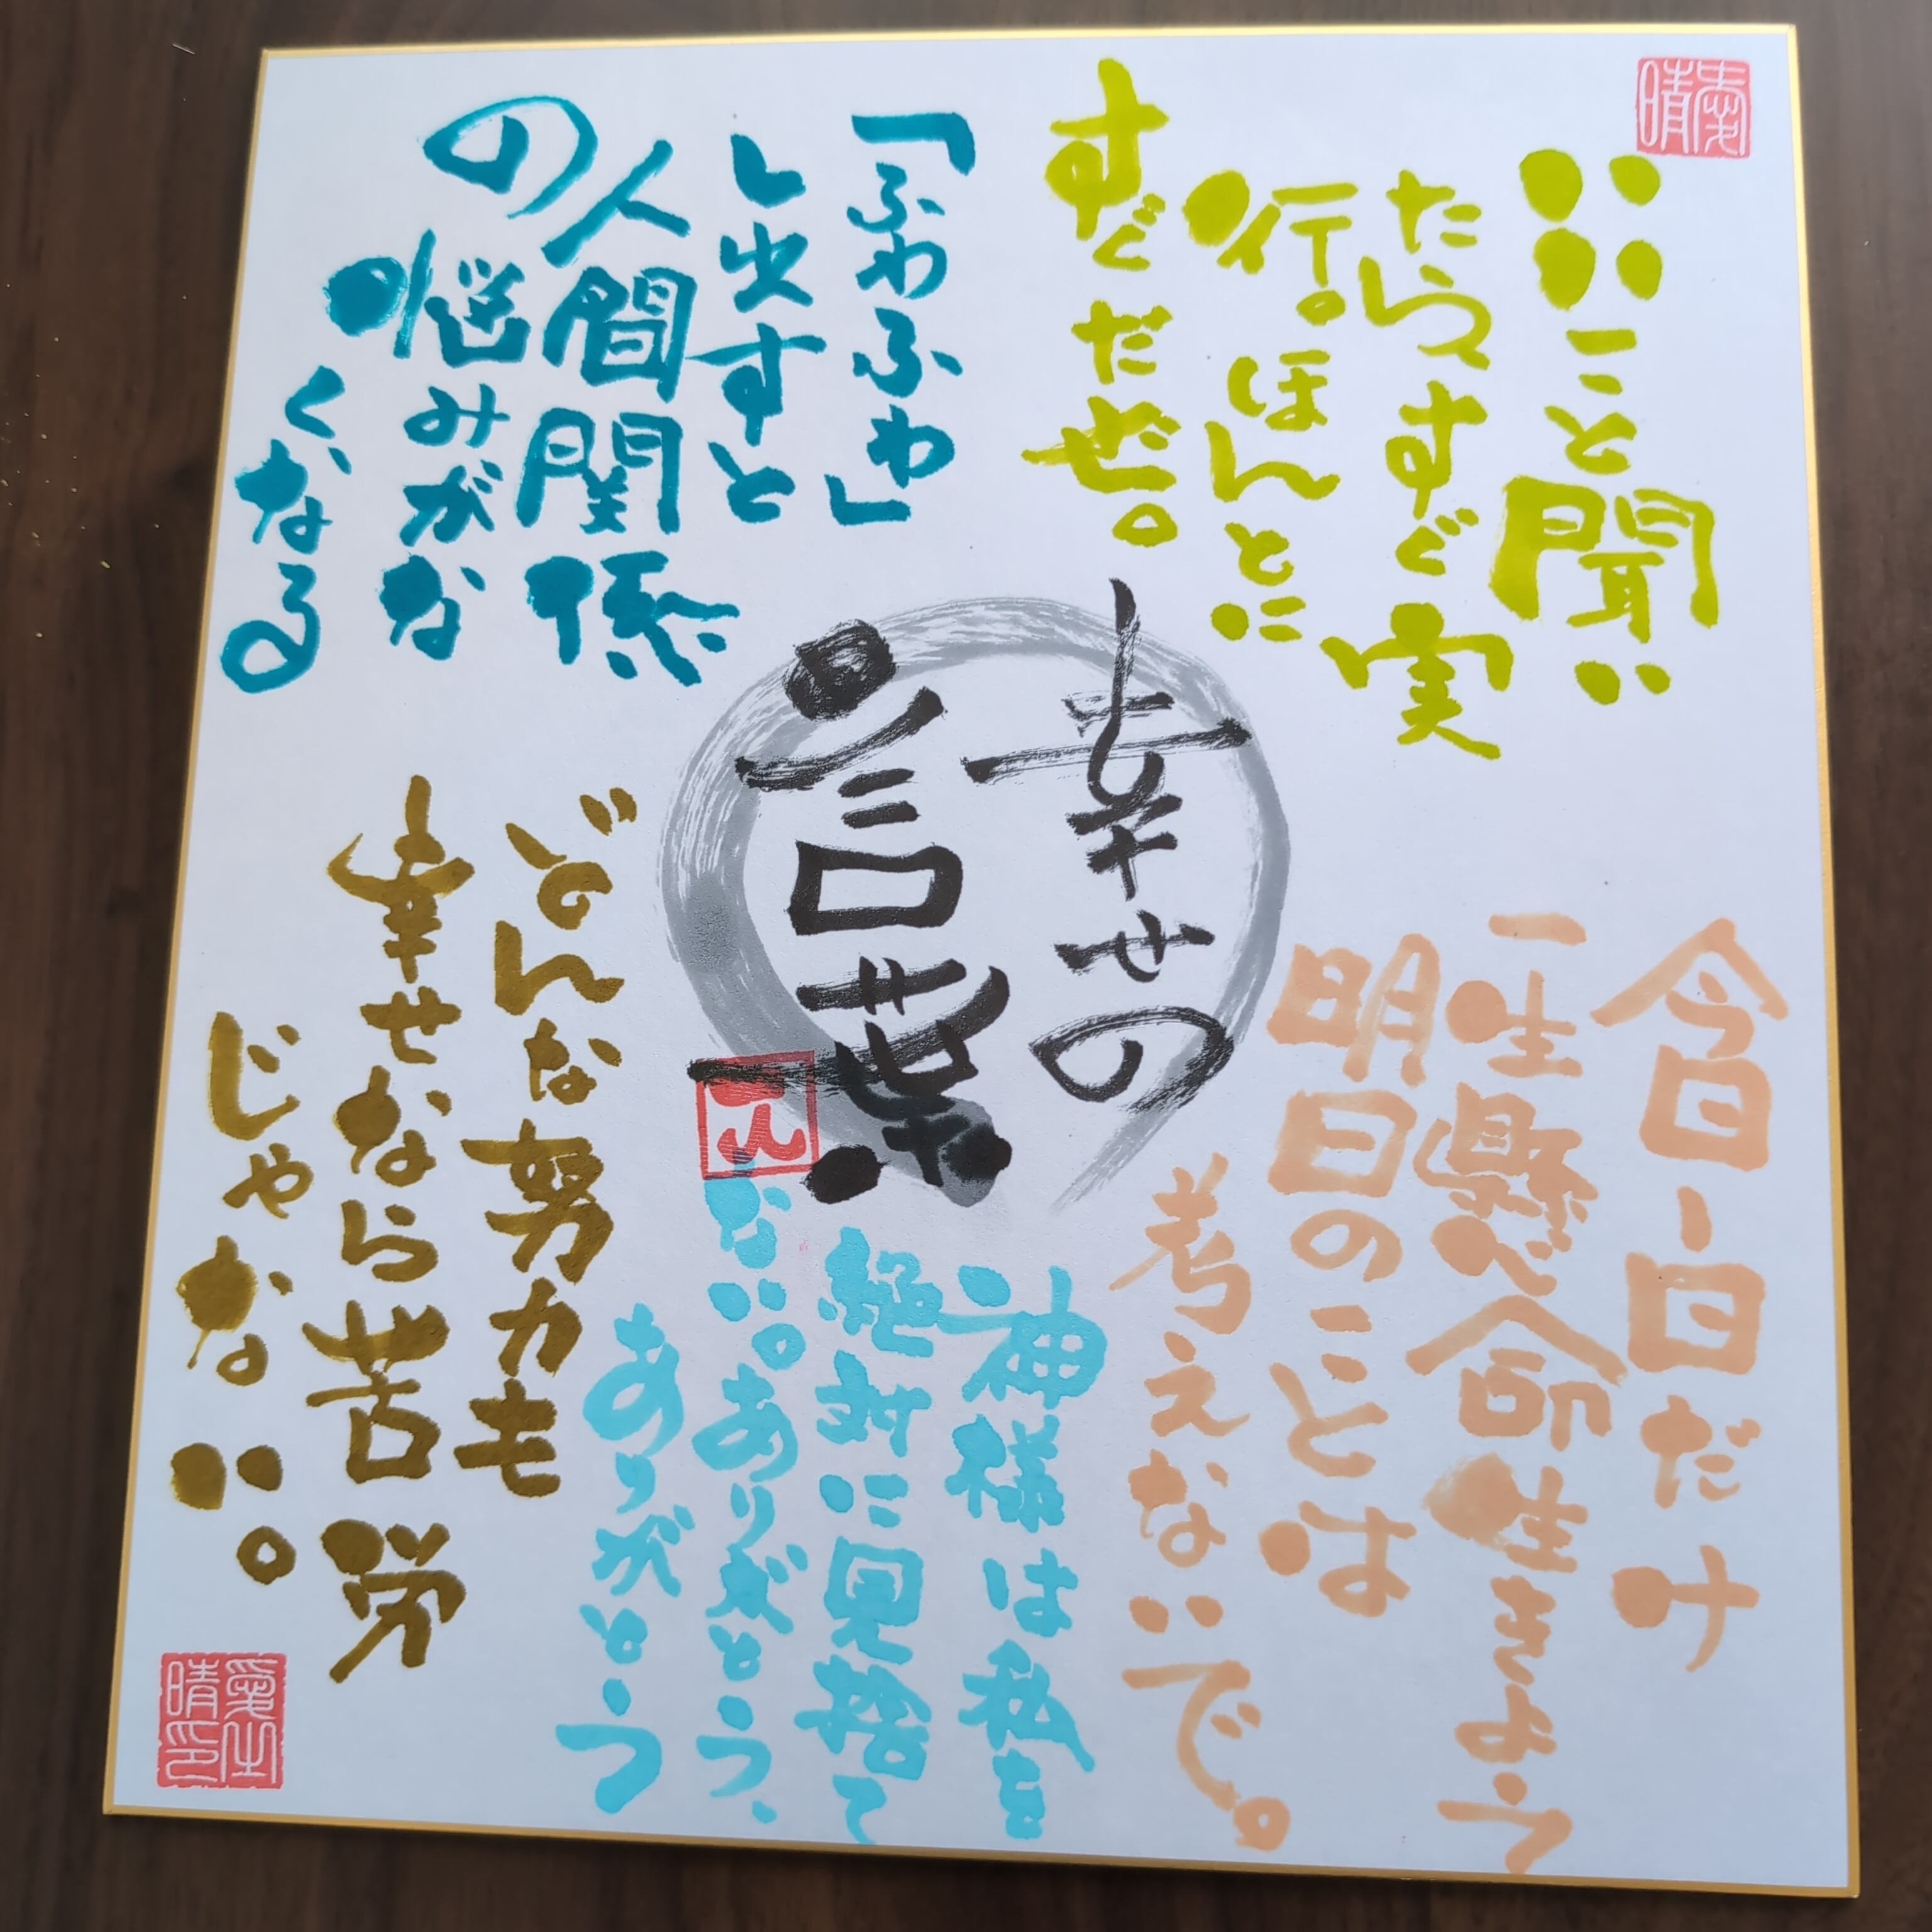 いいこと聞い
たらすぐ実
行。ほんとに
すぐだぜ。
「ふわふわ」
し出すと
人間関係
の悩みがな
くなる
幸せの
言葉
今日一日だけ
一生懸命生きよう
明日のことは
考えないで。
神様は私を
絶対に見捨て
ない。ありがとう、
ありがとう
どんな努力も
幸せなら苦労
じゃない。